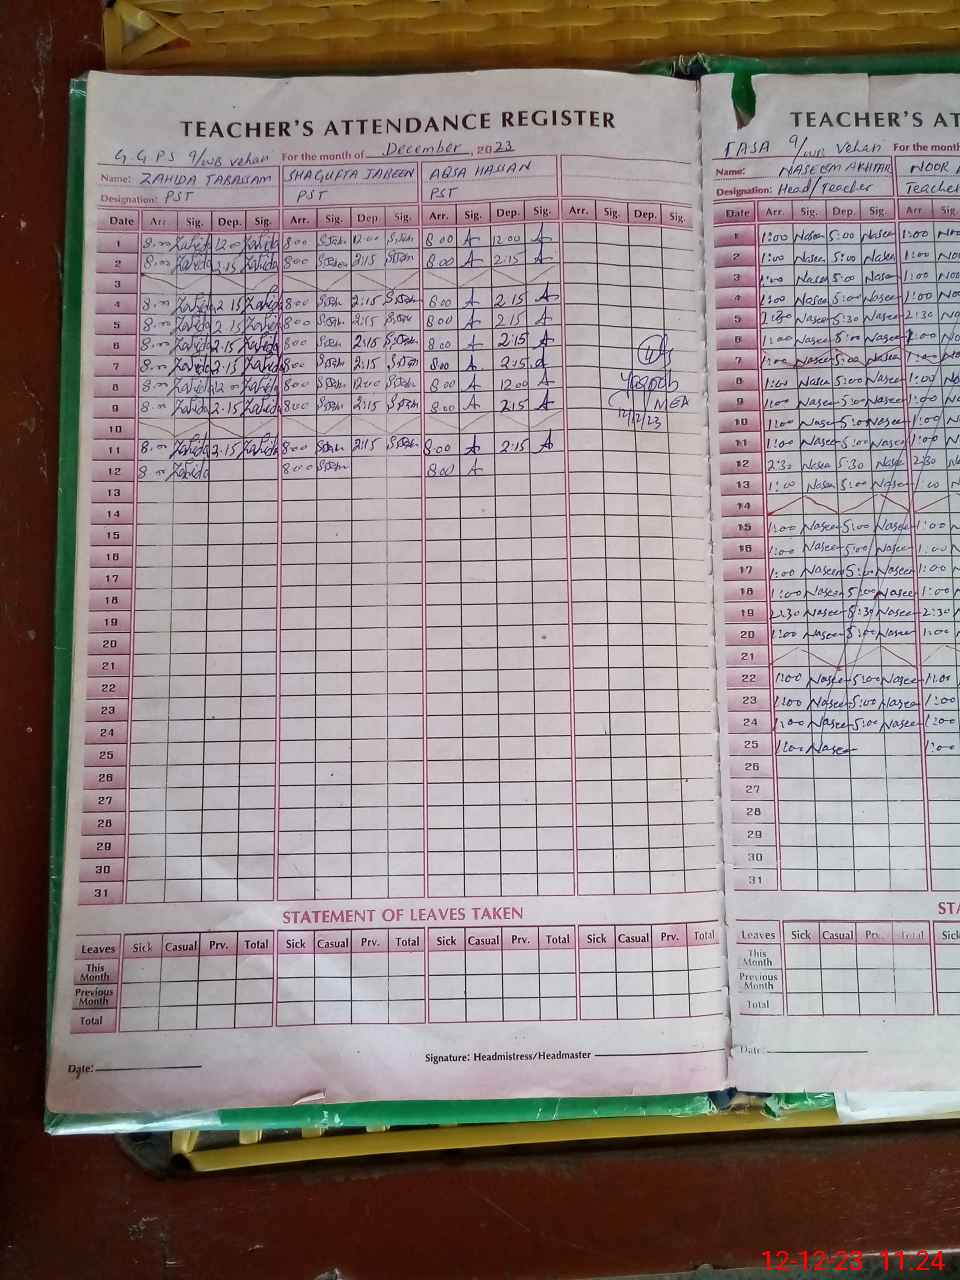 TEACHER'S ATTENDANCE REGISTER
G.G.P.S 9/WB Vehari For the month of December, 2023
Name: ZAHIDA TABASSAM SHAGUFTA JABEEN AQSA HASSAN
Designation: PST PST PST
Date Arr. Sig. Dep. Sig. Arr. Sig. Dep. Sig. Arr. Sig. Dep. Sig. Arr. Sig. Dep. Sig.
1 8.00 Zahida 12.00 Zahida 8:00 12:00 8:00 A 12.00 A
2 8.00 Zahida 2.15 Zahida 8:00 2:15 8:00 A 2:15 A
3
4 8.00 Zahida 2.15 Zahida 8:00 2:15 8:00 A 2:15 A
5 8.00 Zahida 2.15 Zahida 8:00 2:15 8:00 A 2:15 A
6 8.00 Zahida 2.15 Zahida 8:00 2:15 8:00 A 2:15 A
7 8.00 Zahida 2.15 Zahida 8:00 2:15 8:00 A 2:15 A
8 8.00 Zahida 12.00 Zahida 8:00 12:00 8:00 A 12:00 A
9 8.00 Zahida 2.15 Zahida 8:00 2:15 8:00 A 2:15 A
MEA
12/12/23
10
11 8.00 Zahida 2.15 Zahida 8:00 2:15 8:00 A 2:15 A
12 8.00 Zahida 8:00 8:00 A
13
14
15
16
17
18
19
20
21
22
23
24
25
26
27
28
29
30
31
STATEMENT OF LEAVES TAKEN
Leaves Sick Casual Prv. Total Sick Casual Prv. Total Sick Casual Prv. Total Sick Casual Prv. Total
This Month
Previous Month
Total
Date: Signature: Headmistress/Headmaster
TEACHER'S AT
TASA 9/WB Vehari For the
Name: NASEEM AKHTAR NOOR
Designation: Head/Teacher Teacher
Date Arr. Sig. Dep. Sig. Arr. Sig.
1 1:00 Naseem 5:00 Naseem 1:00
2 1:00 Naseem 5:00 Naseem 1:00
3 1:00 Naseem 5:00 Naseem 1:00
4 1:00 Naseem 5:00 Naseem 1:00
5 2:30 Naseem 5:30 Naseem 2:30
6 1:00 Naseem 5:00 Naseem 1:00
7 1:00 Naseem 5:00 Naseem 1:00
8 1:00 Naseem 5:00 Naseem 1:00
9 1:00 Naseem 5:00 Naseem 1:00
10 1:00 Naseem 5:00 Naseem 1:00
11 1:00 Naseem 5:00 Naseem 1:00
12 2:30 Naseem 5:30 Naseem 2:30
13 1:00 Naseem 5:00 Naseem 1:00
14
15 1:00 Naseem 5:00 Naseem 1:00
16 1:00 Naseem 5:00 Naseem 1:00
17 1:00 Naseem 5:00 Naseem 1:00
18 1:00 Naseem 5:00 Naseem 1:00
19 2:30 Naseem 5:30 Naseem 2:30
20 1:00 Naseem 5:00 Naseem 1:00
21
22 1:00 Naseem 5:00 Naseem 1:00
23 1:00 Naseem 5:00 Naseem 1:00
24 1:00 Naseem 5:00 Naseem 1:00
25 1:00 Naseem 1:00
26
27
28
29
30
31
STA
Leaves Sick Casual Prv. Total Sick
This Month
Previous Month
Total
Date:
12-12-23 11.24